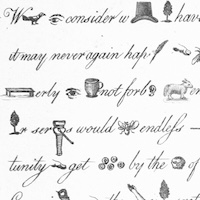 We consider w hav
it may never again hap
erly not forb en
r ser s would endless —
tunity get by the of
the